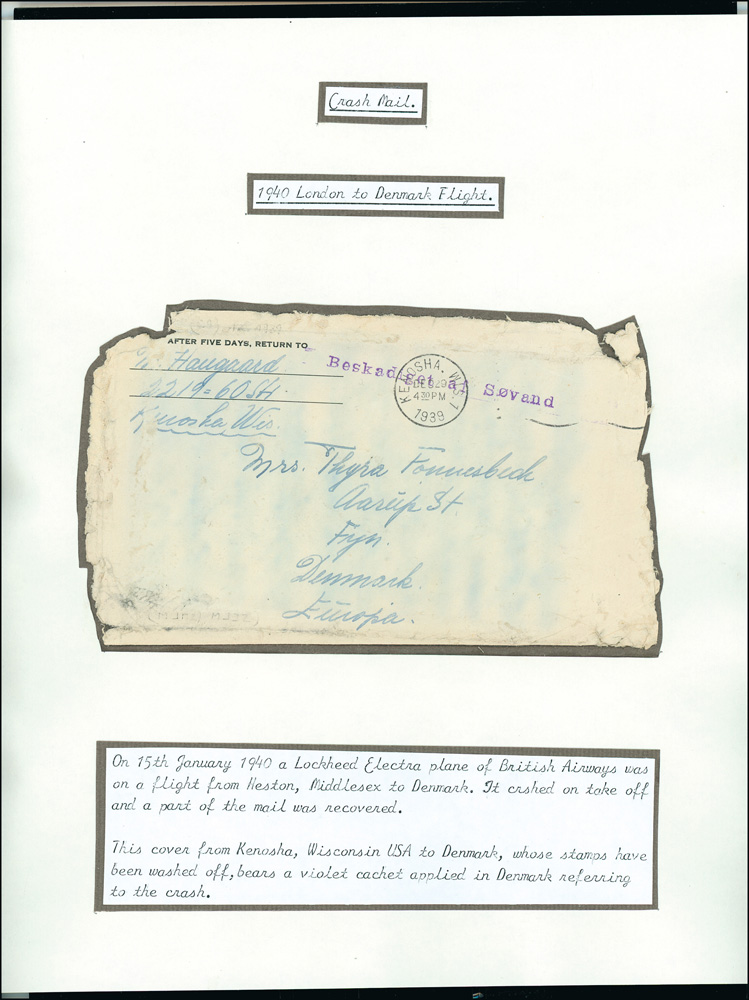 Crash Mail.
1940 London to Denmark Flight.
AFTER FIVE DAYS, RETURN TO
Haugaard
2219-60 St.
Kenosha Wis.
Beskadiget af Søvand
KENOSHA, WIS. 1
DEC 29
4 30 PM
1939
Mrs. Thyra Fonnesbech
Aarup St.
Fyn.
Denmark.
Europa.
On 15th January 1940 a Lockheed Electra plane of British Airways was
on a flight from Heston, Middlesex to Denmark. It crshed on take off
and a part of the mail was recovered.
This cover from Kenosha, Wisconsin USA to Denmark, whose stamps have
been washed off, bears a violet cachet applied in Denmark referring
to the crash.